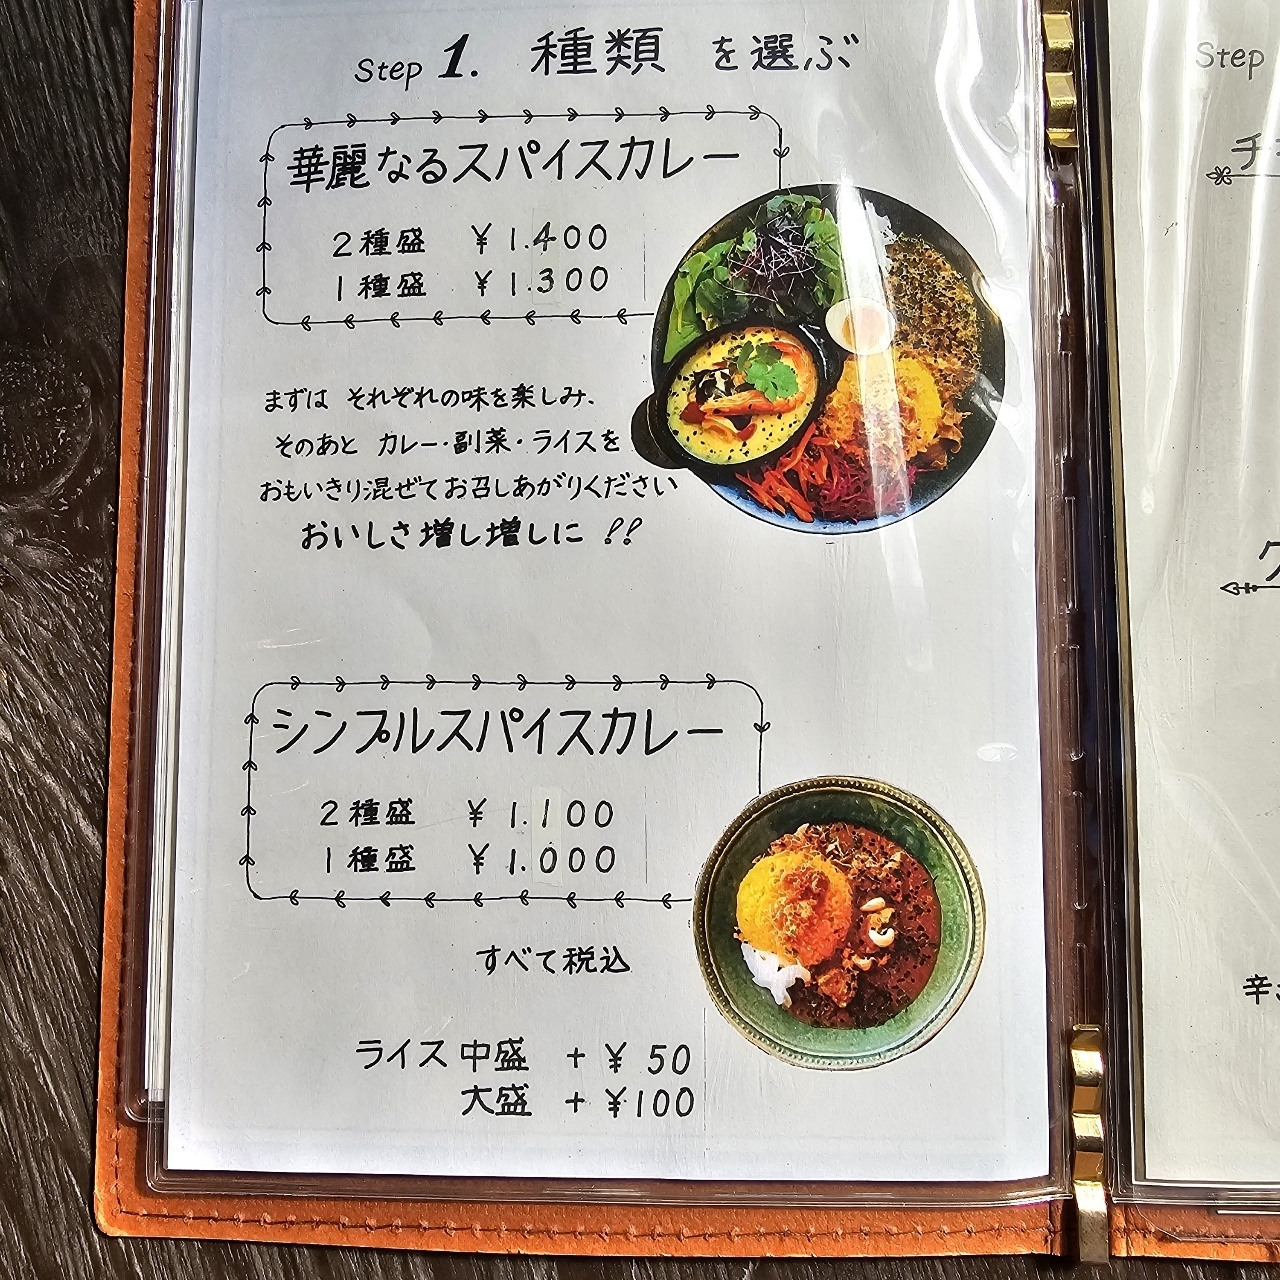 Step 1. 種類 を選ぶ
華麗なるスパイスカレー
2種盛 ¥1.400
1種盛 ¥1.300
まずは それぞれの味を楽しみ、
そのあと カレー・副菜・ライスを
おもいきり混ぜてお召しあがりください
おいしさ増し増しに!!
シンプルスパイスカレー
2種盛 ¥1.100
1種盛 ¥1.000
すべて税込
ライス中盛 +¥50
大盛 +¥100
Step
辛